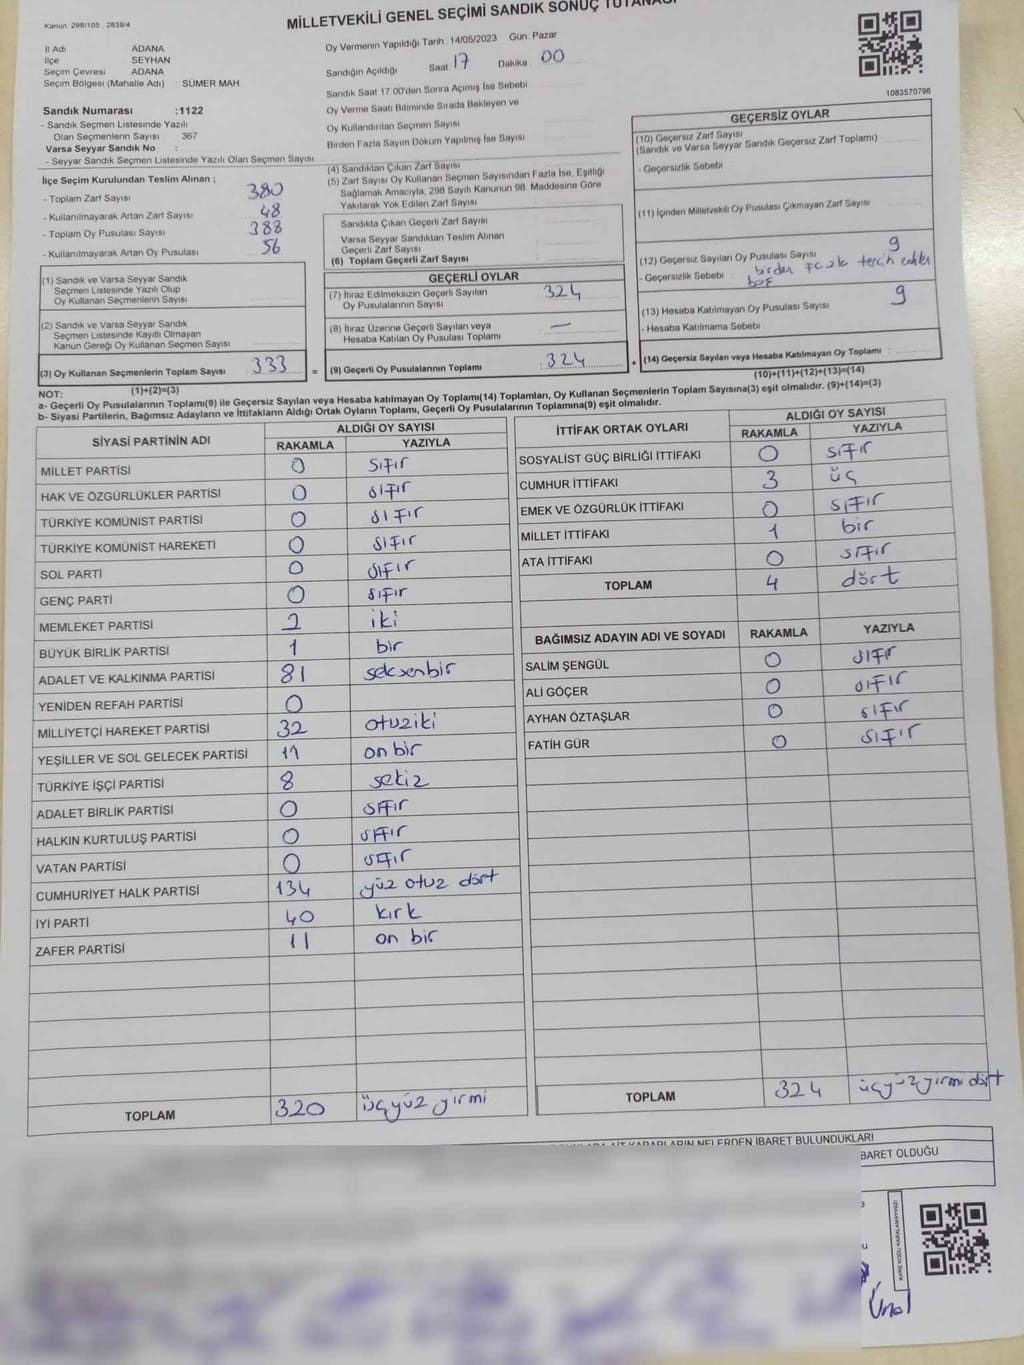 Kanun: 298/105 : 2839/4
MİLLETVEKİLİ GENEL SEÇİMİ SANDIK SONUÇ TUTANAĞI
İl Adı ADANA
İlçe SEYHAN
Seçim Çevresi ADANA
Seçim Bölgesi (Mahalle Adı) : SÜMER MAH
Sandık Numarası :1122
- Sandık Seçmen Listesinde Yazılı
Olan Seçmenlerin Sayısı 367
Varsa Seyyar Sandık No :
- Seyyar Sandık Seçmen Listesinde Yazılı Olan Seçmen Sayısı
Oy Vermenin Yapıldığı Tarih : 14/05/2023 Gün: Pazar
Sandığın Açıldığı Saat 17 Dakika 00
Sandık Saat 17.00'den Sonra Açılmış İse Sebebi
Oy Verme Saati Bitiminde Sırada Bekleyen ve
Oy Kullandırılan Seçmen Sayısı
Birden Fazla Sayım Döküm Yapılmış İse Sayısı
1083570796
İlçe Seçim Kurulundan Teslim Alınan ;
- Toplam Zarf Sayısı 380
- Kullanılmayarak Artan Zarf Sayısı 48
- Toplam Oy Pusulası Sayısı 388
- Kullanılmayarak Artan Oy Pusulası 56
(1) Sandık ve Varsa Seyyar Sandık
Seçmen Listesinde Yazılı Olup
Oy Kullanan Seçmenlerin Sayısı
(2) Sandık ve Varsa Seyyar Sandık
Seçmen Listesinde Kayıtlı Olmayan
Kanun Gereği Oy Kullanan Seçmen Sayısı
(3) Oy Kullanan Seçmenlerin Toplam Sayısı : 333
(1)+(2)=(3)
(4) Sandıktan Çıkan Zarf Sayısı
(5) Zarf Sayısı Oy Kullanan Seçmen Sayısından Fazla İse, Eşitliği
Sağlamak Amacıyla, 298 Sayılı Kanunun 98. Maddesine Göre
Yakılarak Yok Edilen Zarf Sayısı
Sandıkta Çıkan Geçerli Zarf Sayısı
Varsa Seyyar Sandıktan Teslim Alınan
Geçerli Zarf Sayısı
(6) Toplam Geçerli Zarf Sayısı
GEÇERLİ OYLAR
(7) İtiraz Edilmeksizin Geçerli Sayılan
Oy Pusulalarının Sayısı : 324
(8) İtiraz Üzerine Geçerli Sayılan veya
Hesaba Katılan Oy Pusulası Toplamı : —
(9) Geçerli Oy Pusulalarının Toplamı : 324
GEÇERSİZ OYLAR
(10) Geçersiz Zarf Sayısı
(Sandık ve Varsa Seyyar Sandık Geçersiz Zarf Toplamı)
- Geçersizlik Sebebi :
(11) İçinden Milletvekili Oy Pusulası Çıkmayan Zarf Sayısı
(12) Geçersiz Sayılan Oy Pusulası Sayısı 9
- Geçersizlik Sebebi : birden
(13) Hesaba Katılmayan Oy Pusulası Sayısı 9
- Hesaba Katılmama Sebebi :
(14) Geçersiz Sayılan veya Hesaba Katılmayan Oy Toplamı :
(10)+(11)+(12)+(13)=(14)
NOT:
a- Geçerli Oy Pusulalarının Toplamı(9) ile Geçersiz Sayılan veya Hesaba katılmayan Oy Toplamı(14) Toplamları, Oy Kullanan Seçmenlerin Toplam Sayısına(3) eşit olmalıdır. (9)+(14)=(3)
b- Siyasi Partilerin, Bağımsız Adayların ve İttifakların Aldığı Ortak Oyların Toplamı, Geçerli Oy Pusulalarının Toplamına(9) eşit olmalıdır.
SİYASİ PARTİNİN ADI ALDIĞI OY SAYISI
RAKAMLA YAZIYLA
MİLLET PARTİSİ 0 sıfır
HAK VE ÖZGÜRLÜKLER PARTİSİ 0 sıfır
TÜRKİYE KOMÜNİST PARTİSİ 0 sıfır
TÜRKİYE KOMÜNİST HAREKETİ 0 sıfır
SOL PARTİ 0 sıfır
GENÇ PARTİ 0 sıfır
MEMLEKET PARTİSİ 2 iki
BÜYÜK BİRLİK PARTİSİ 1 bir
ADALET VE KALKINMA PARTİSİ 81 seksenbir
YENİDEN REFAH PARTİSİ 0
MİLLİYETÇİ HAREKET PARTİSİ 32 otuziki
YEŞİLLER VE SOL GELECEK PARTİSİ 11 on bir
TÜRKİYE İŞÇİ PARTİSİ 8 sekiz
ADALET BİRLİK PARTİSİ 0 sıfır
HALKIN KURTULUŞ PARTİSİ 0 sıfır
VATAN PARTİSİ 0 sıfır
CUMHURİYET HALK PARTİSİ 134 yüz otuz dört
İYİ PARTİ 40 kırk
ZAFER PARTİSİ 11 on bir
TOPLAM 320 üçyüz yirmi
İTTİFAK ORTAK OYLARI ALDIĞI OY SAYISI
RAKAMLA YAZIYLA
SOSYALİST GÜÇ BİRLİĞİ İTTİFAKI 0 sıfır
CUMHUR İTTİFAKI 3 üç
EMEK VE ÖZGÜRLÜK İTTİFAKI 0 sıfır
MİLLET İTTİFAKI 1 bir
ATA İTTİFAKI 0 sıfır
TOPLAM 4 dört
BAĞIMSIZ ADAYIN ADI VE SOYADI RAKAMLA YAZIYLA
SALİM ŞENGÜL 0 sıfır
ALİ GÖÇER 0 sıfır
AYHAN ÖZTAŞLAR 0 sıfır
FATİH GÜR 0 sıfır
TOPLAM 324 üçyüz yirmi dört
KARARLARIN NELERDEN İBARET BULUNDUKLARI
BARET OLDUĞU
KARE KODU KARALAMAYINIZ!
Ünal